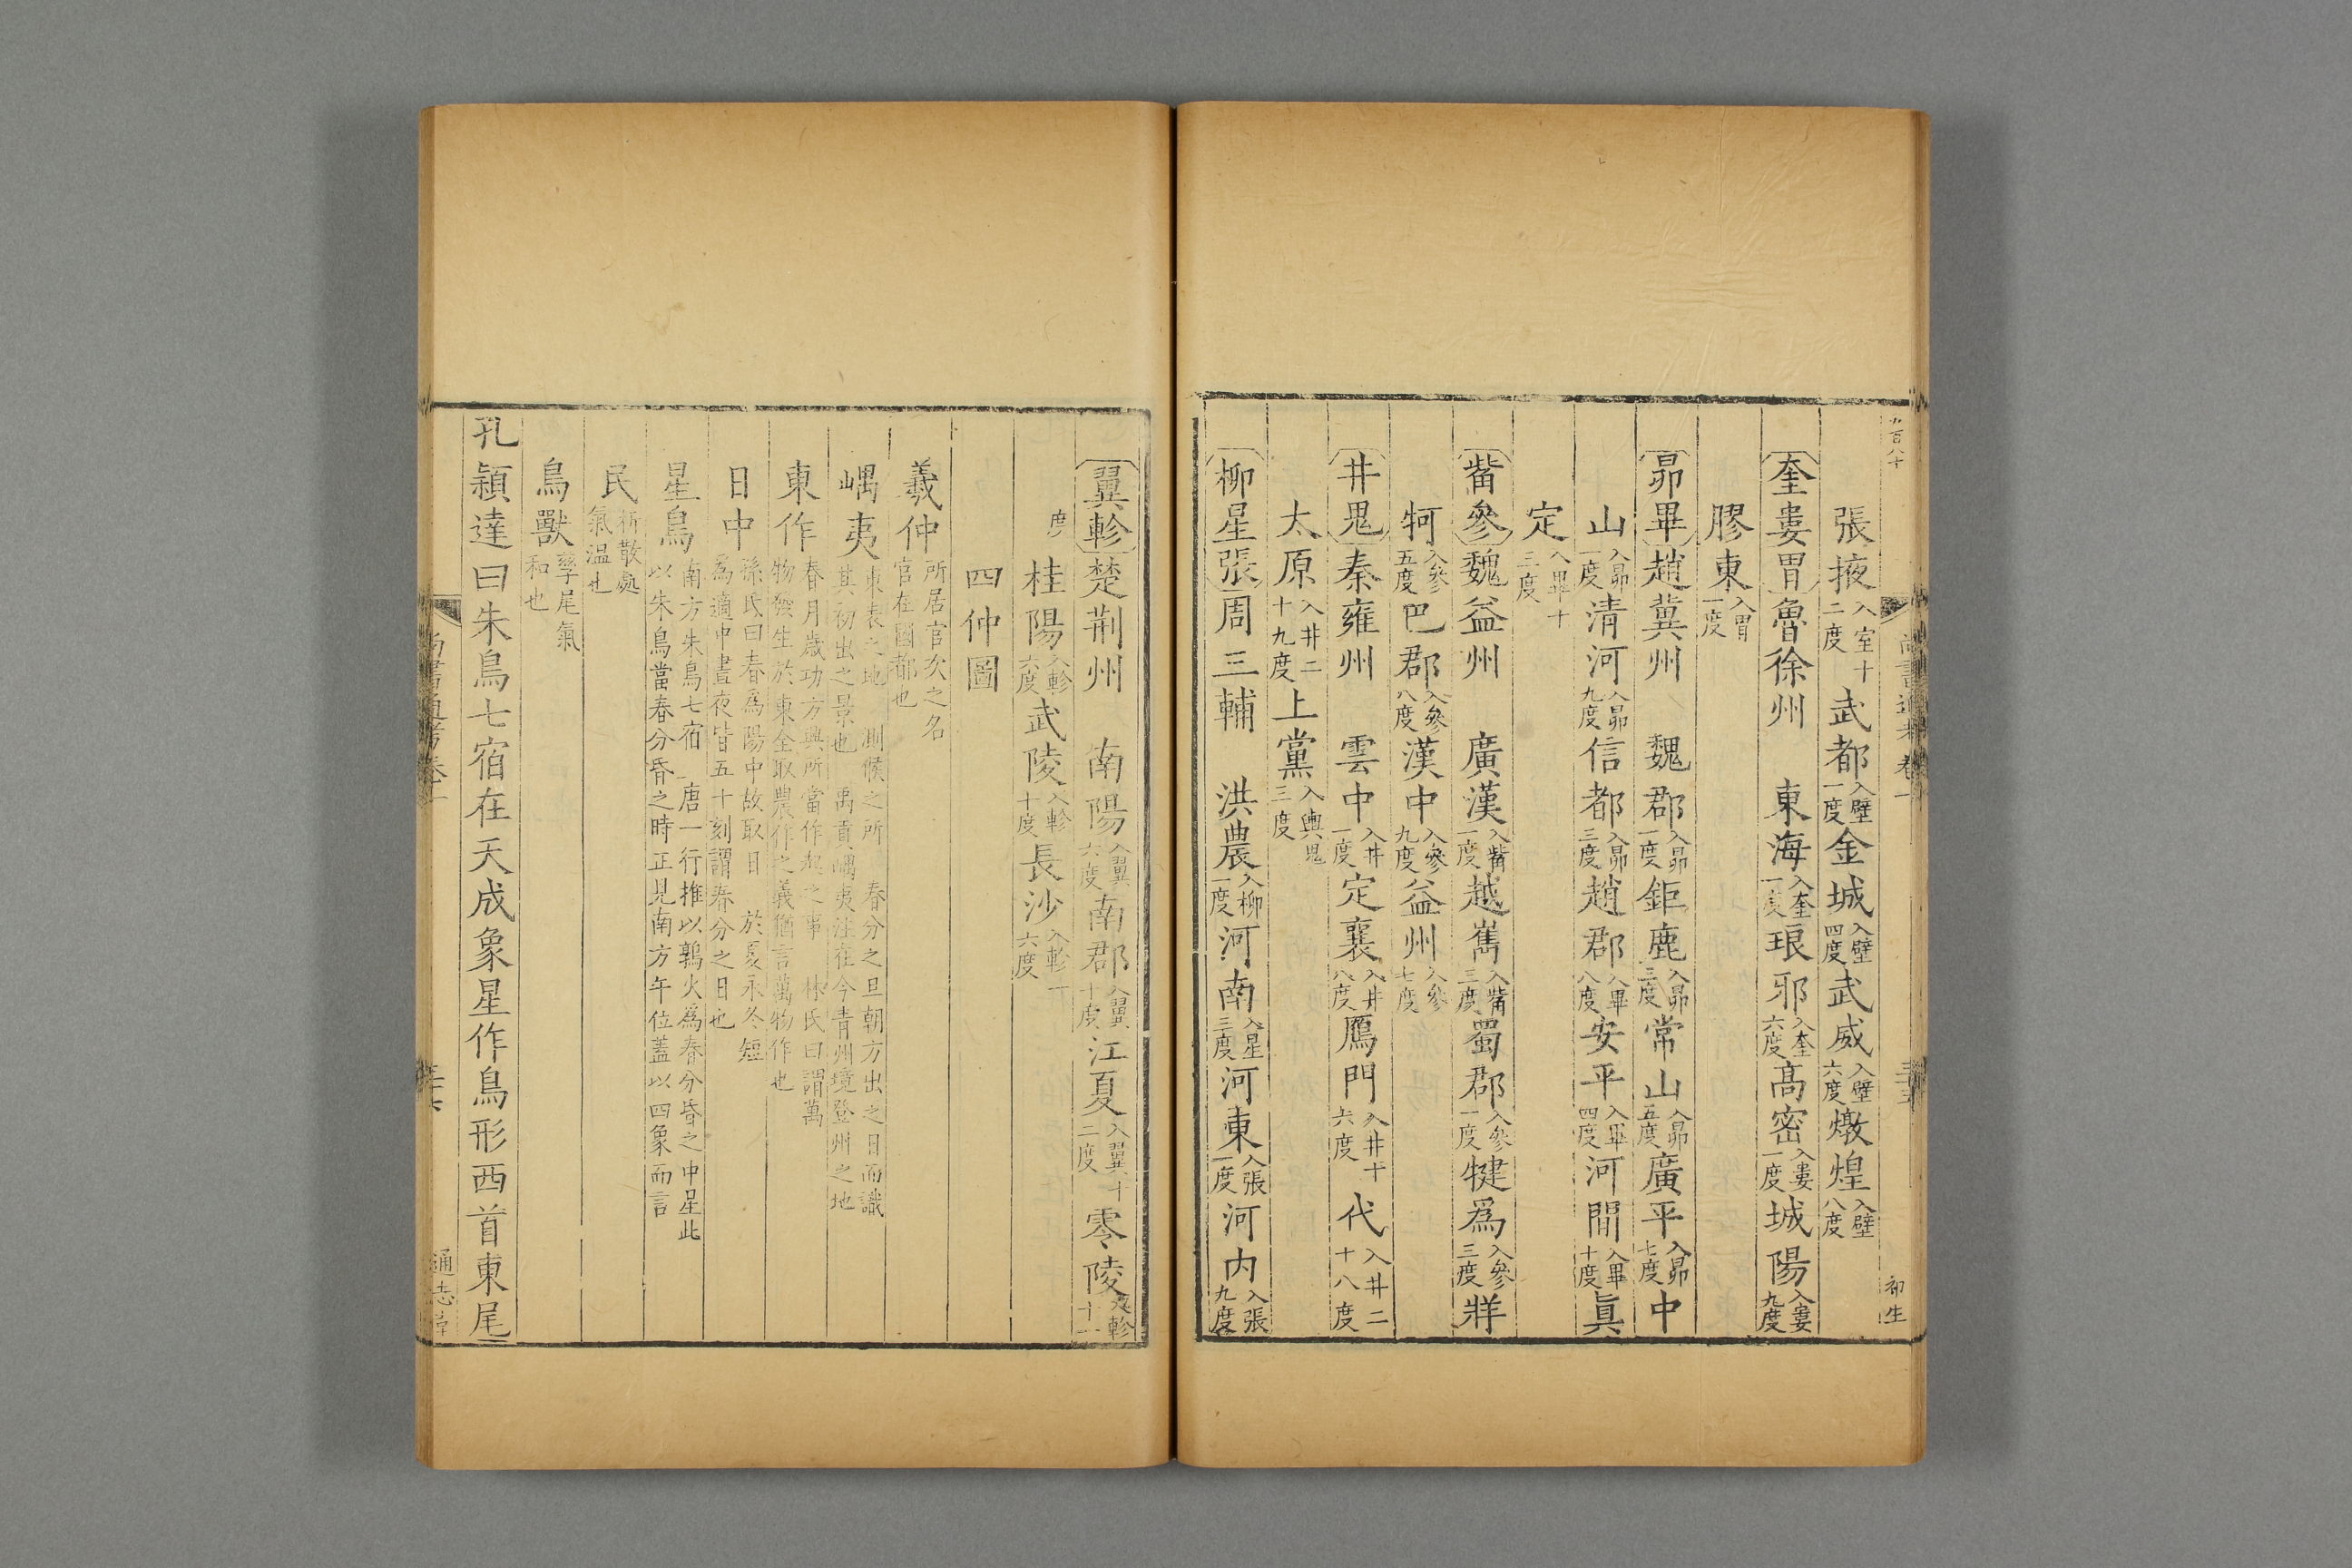 張掖入室十二度武都入壁一度金城入壁四度武威入壁六度燉煌入壁八度
奎婁胃魯徐州 東海入奎一度琅邪入奎六度高密入婁一度城陽入婁九度
膠東入胃一度
昴畢趙冀州 魏郡入昴一度鉅鹿入昴三度常山入昴五度廣平入昴七度中
山入昴一度清河入昴九度信都入昴三度趙郡入畢八度安平入畢四度河間入畢十度眞
定入畢十三度
觜參魏益州 廣漢入觜一度越巂入觜三度蜀郡入參一度犍爲入參三度牂
牱入參五度巴郡入參八度漢中入參九度益州入參七度
井鬼秦雍州 雲中入井一度定襄入井八度鴈門入井十六度代入井二十八度
太原入井二十九度上黨入輿鬼三度
柳星張周三輔 洪農入柳一度河南入星三度河東入張一度河內入張九度
翼軫楚荆州 南陽入翼六度南郡入翼十度江夏入翼十二度零陵入軫十一
度桂陽入軫六度武陵入軫十度長沙入軫十六度
四仲圖
羲仲所居官次之名官在國都也
嵎夷東表之地 測候之所 春分之旦朝方出之日而識其初出之景也 禹貢嵎夷注在今青州境登州之地
東作春月歲功方興所當作起之事 林氏曰謂萬物發生於東全取農作之義猶言萬物作也
日中孫氏曰春爲陽中故取日 於夏永冬短爲適中晝夜皆五十刻謂春分之日也
星鳥南方朱鳥七宿 唐一行推以鶉火爲春分昏之中星此以朱鳥當春分昏之時正見南方午位蓋以四象而言
民析散處氣溫也
鳥獸孳尾氣和也
孔頴達曰朱鳥七宿在天成象星作鳥形西首東尾
尚書通考卷一
通志堂